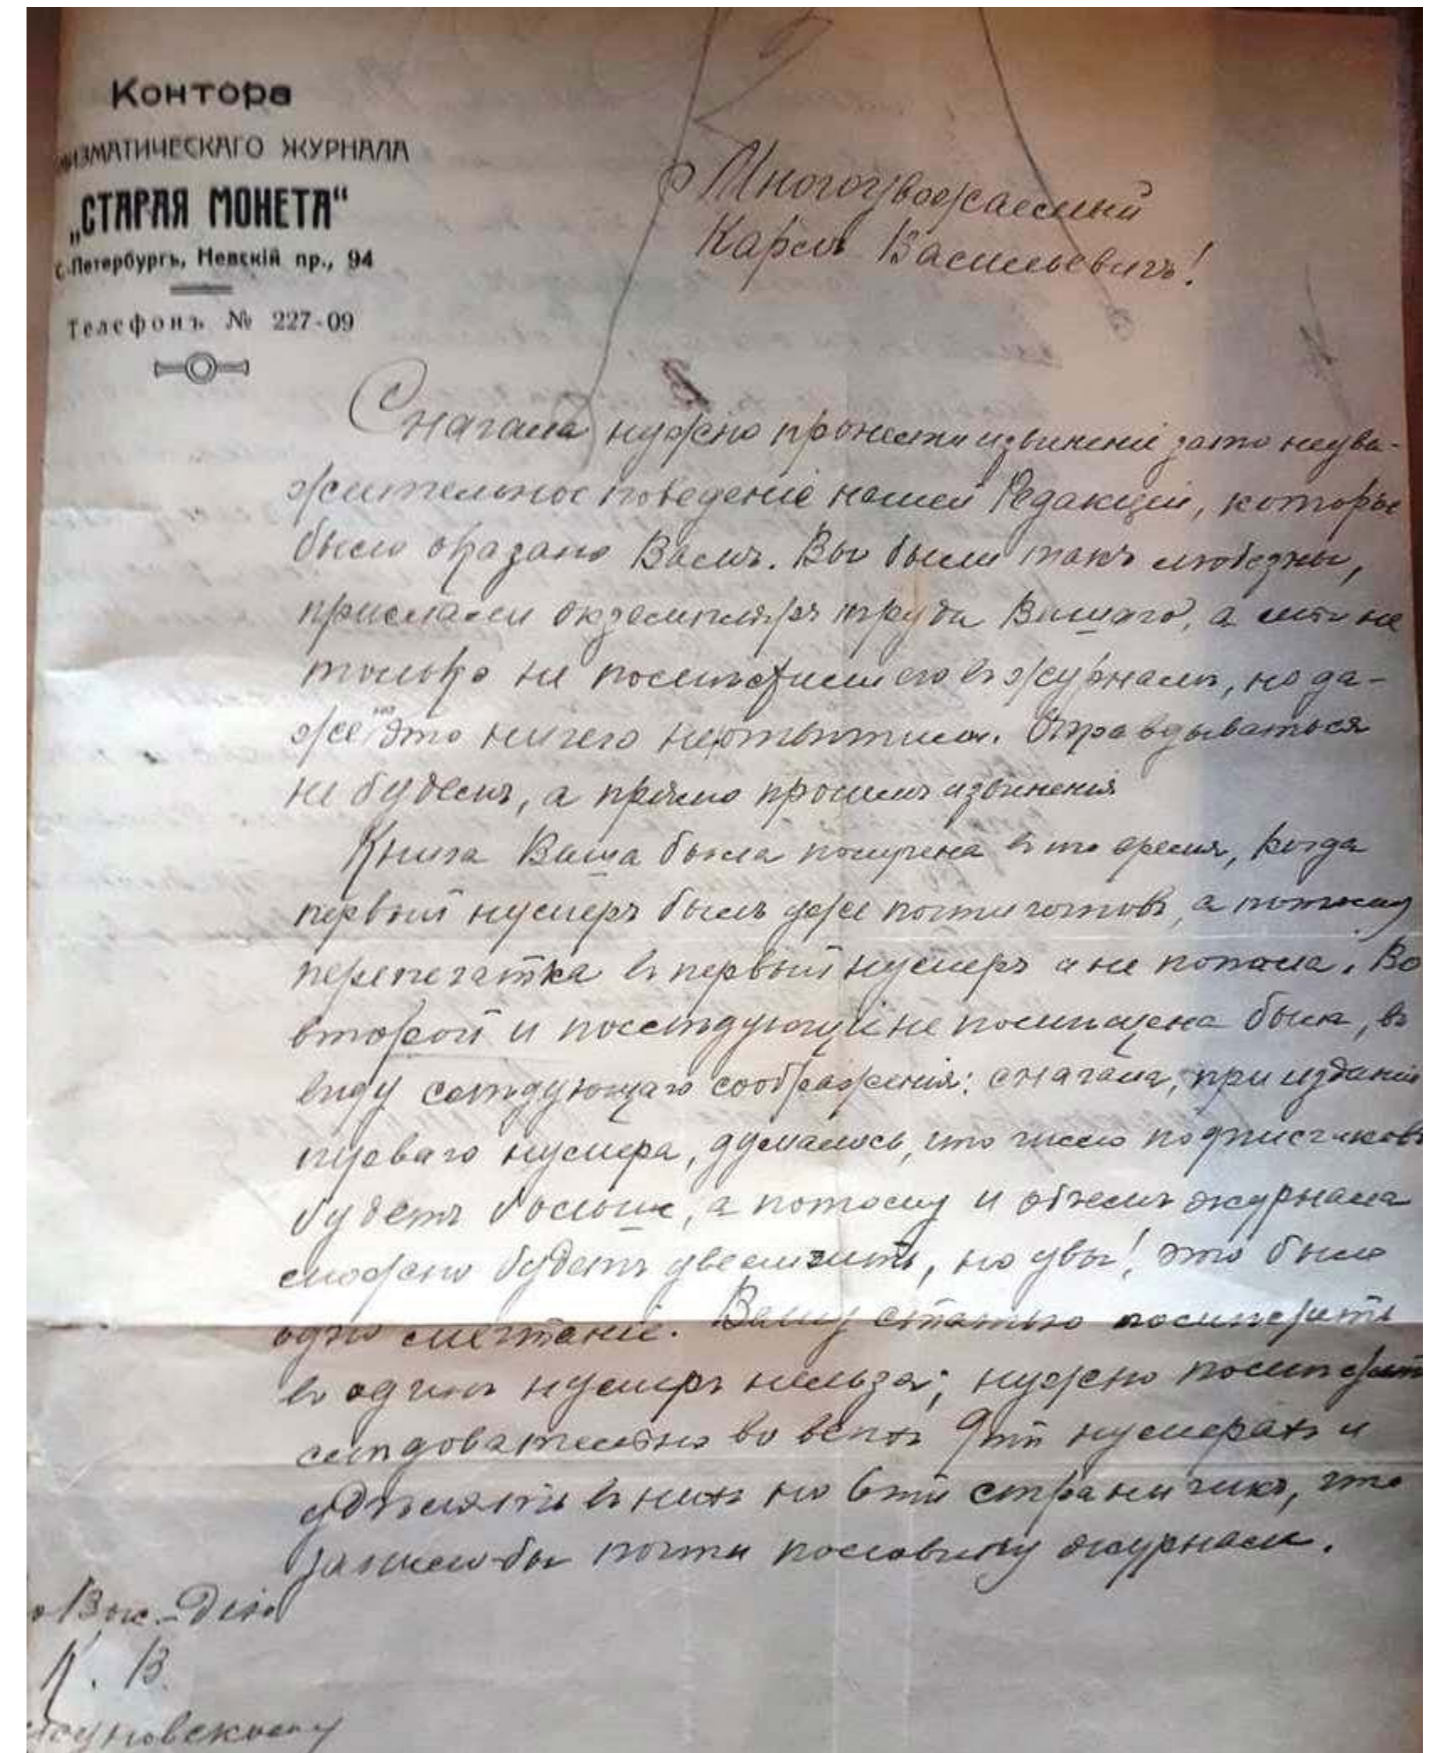 Контора
НУМИЗМАТИЧЕСКАГО ЖУРНАЛА
„СТАРАЯ МОНЕТА“
С.-Петербургъ, Невскій пр., 94
Телефонъ № 227-09
Многоуважаемый
Карлъ Васильевичъ!
Сначала нужно принести извиненіе за то неува-
жительное поведеніе нашей Редакціи, которое
было оказано Вамъ. Вы были такъ любезны,
прислали экземпляръ труда Вашаго, а мы не
только не помѣстили его въ журналъ, но да-
же на это ничего не отвѣтили. Оправдываться
не будемъ, а прямо просимъ извиненія
Книга Ваша была получена въ то время, когда
первый нумеръ былъ уже почти готовъ, а потому
перепечатка въ первый нумеръ и не попала. Во
второй и послѣдующіе не помѣщена была, въ
виду слѣдующаго соображенія: сначала, при изданіи
перваго нумера, думалось, что число подписчиковъ
будетъ больше, а потому и объемъ журнала
можно будетъ увеличить, но увы! это было
одно мечтаніе. Вашу статью помѣстить
въ одинъ нумеръ нельзя; нужно помѣстить
слѣдовательно во всѣхъ 9ти нумерахъ и
удѣлять въ нихъ по 6ти страничкъ, что
заняло-бы почти половину журнала.
К. В.